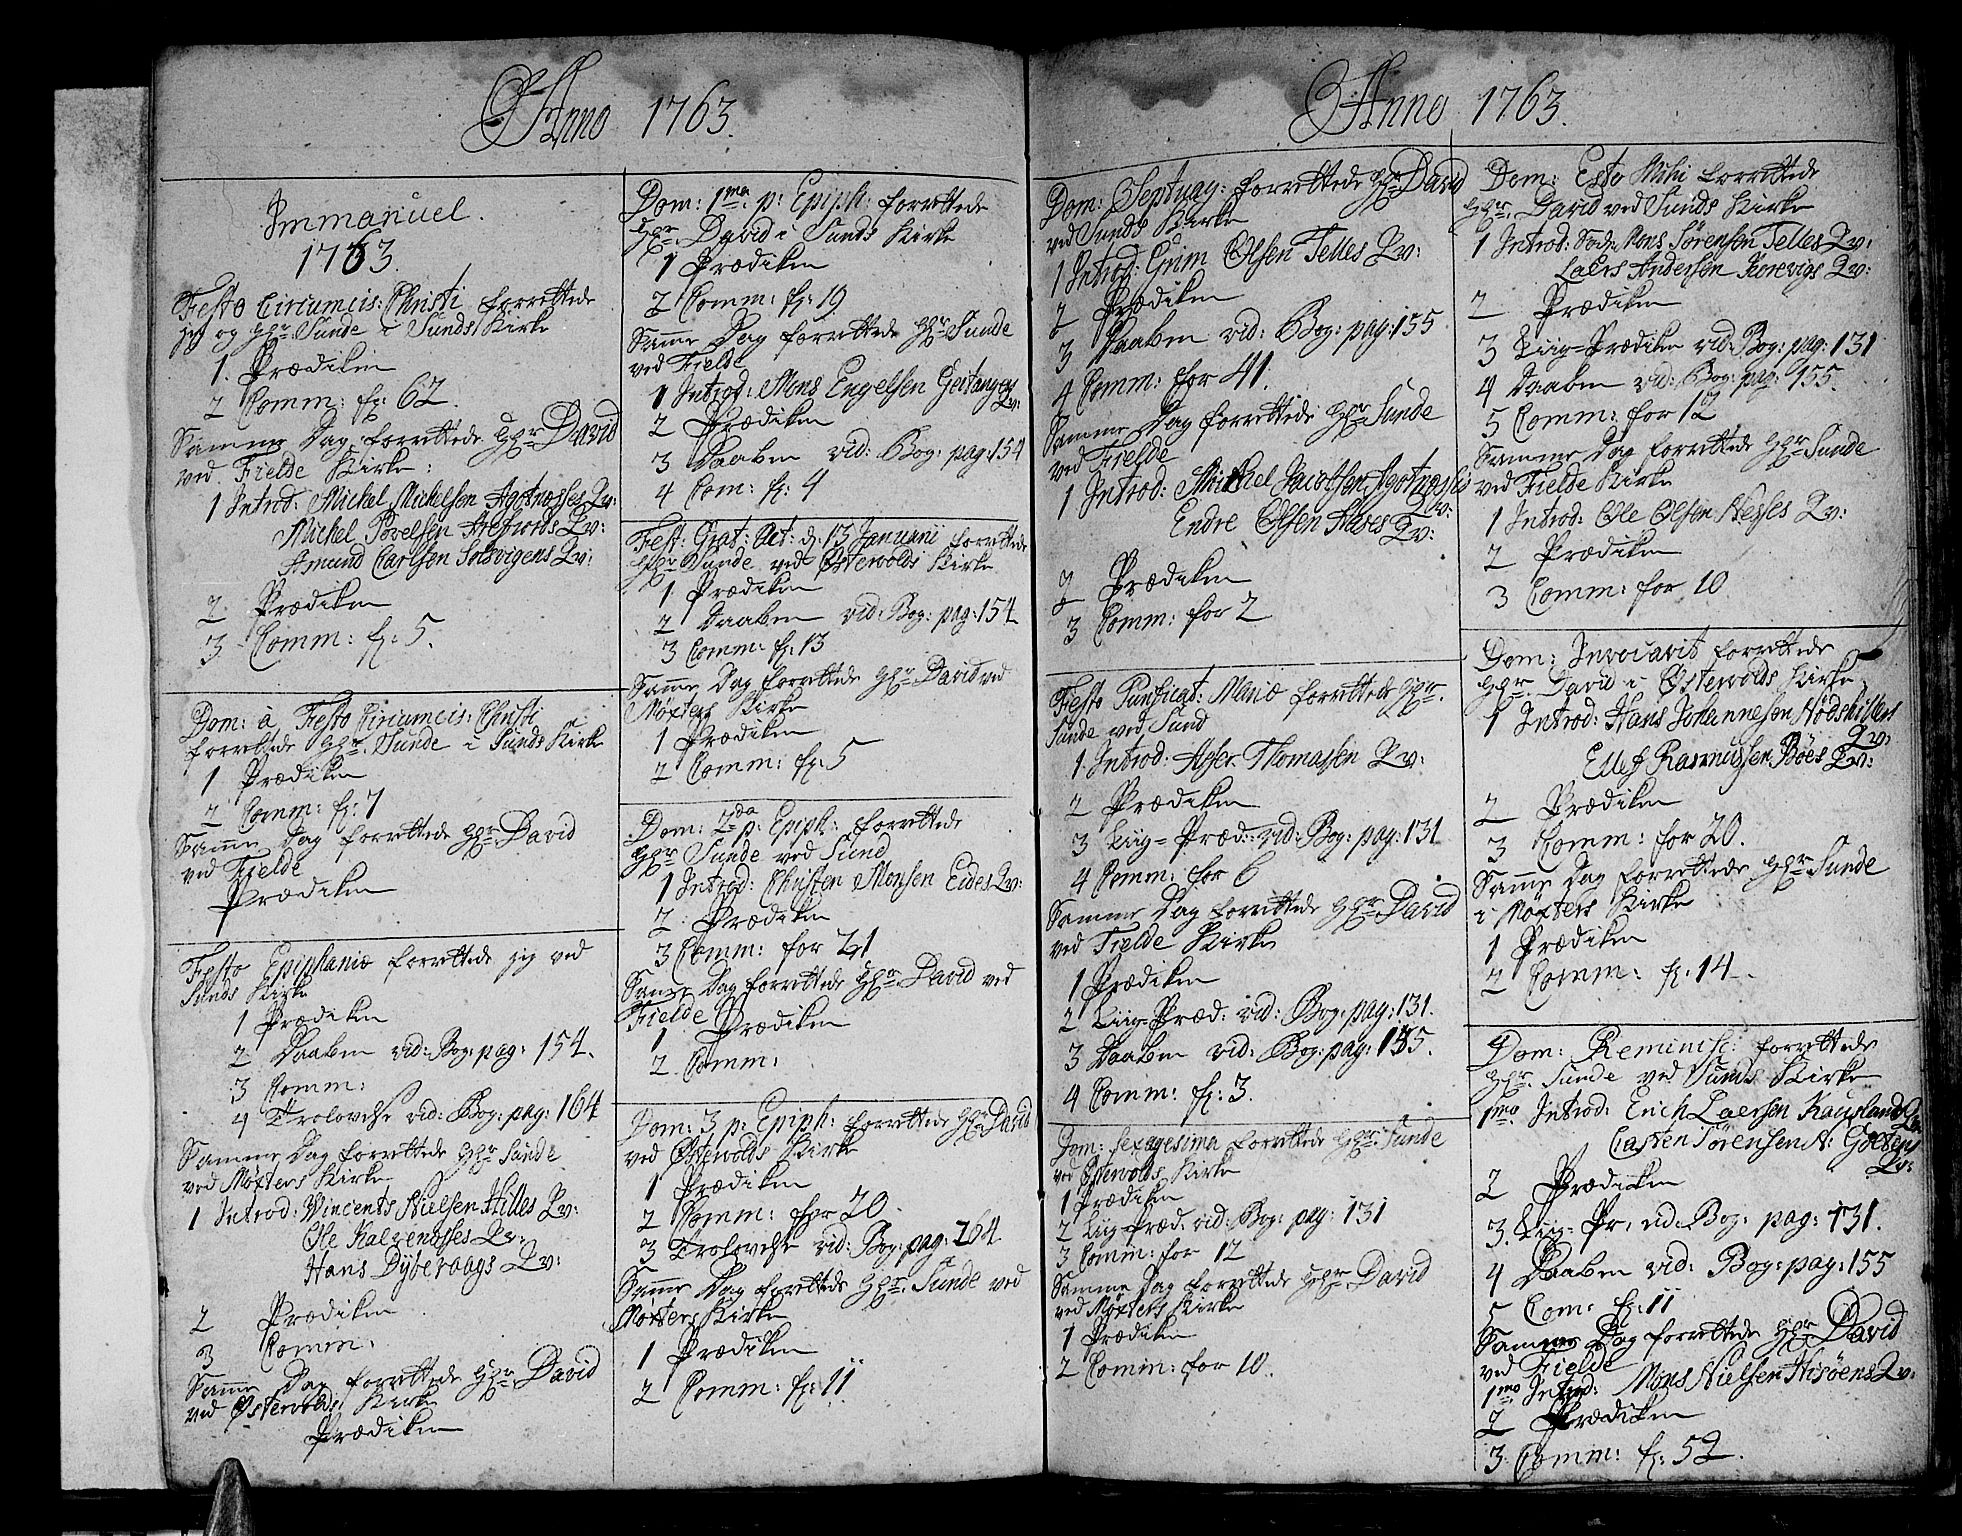 Anno 1763.
Immanuel.
1763.
Festo Circumcis: Christi forrettede
jeg og Hr Sunde i Sunds Kirke
1. Prædiken
2 Comm: fr: 62.
Samme Dag forrettede Hr David
ved Fielde Kirke:
1 Introd: Mickel Michelsen Agotnesses Qv:
Mickel Povelsen Qv:
Amund Carlsen Solsvigens Qv:
2. Prædiken
3. Comm: fr: 5.
Dom: à Festo Circumcis: Christi
forrettede Hr. Sunde i Sunds Kirke
1 Prædiken
2 Comm: fr: 7
Samme Dag forrettede Hr David
ved Fielde
Prædiken
Festo Epiphaniæ forrettede jeg ved
Sunds Kirke
1 Prædiken
2 Daaben vid: Bog: pag: 154.
3 Comm:
4 Trolovelse vid: Bog: pag: 164
Samme Dag forrettede Hr Sunde
ved Møxters Kirke
1 Introd: Vincents Nielsen Hilles Qv:
Ole Kalvenesses Qv:
Hans Dyberaags Qv:
2 Prædiken
3 Comm:
Samme Dag forrettede Hr. David
ved Østervolds Kirke
Prædiken
Dom: 1ma p: Epiph: forrettede
Hr David i Sunds Kirke
1 Prædiken
2 Comm: fr: 19
Samme Dag forrettede Hr Sunde
ved Fielde
1 Introd: Mons Engelsen Giertangers
Qv:
2 Prædiken
3 Daaben vid: Bog: pag: 154
4 Com: fr: 4
Fest: Grat: Act: d: 13 Januarii forrettede
Hr Sunde ved Østervolds Kirke
1. Prædiken
2 Daaben vid: Bog: pag: 154
3 Comm: fr: 13
Samme Dag forrettede Hr David ved
Møxters Kirke
1 Prædiken
2 Comm: fr: 5
Dom: 2da p: Epiph: forrettede
Hr Sunde ved Sund
1 Introd: Christen Monsen Eides Qv:
2. Prædiken
3 Comm: for 21
Samme Dag forrettede Hr David ved
Fielde
1. Prædiken
2. Comm:
Dom: 3 p: Epiph: forrettede Hr David
ved Østervolds Kirke
1 Prædiken
2 Comm: for 20.
3 Trolovelse vid: Bog: pag: 164
Samme Dag forrettede Hr. Sunde ved
Møxters Kirke
1 Prædiken
2 Comm: fr: 11
Anno 1763.
Dom: Septuag: forrettede Hr David
ved Sunds Kirke
1 Introd: Grim Olsen Telles Qv:
2 Prædiken
3 Daaben vid: Bog: pag: 155
4 Comm: for 41.
Samme Dag forrettede Hr Sunde
ved Fielde
1 Introd: Michel Jacobsen Agotnesses
Qv:
Endre Olsen Aases Qv:
2 Prædiken
3 Comm: for 2
Festo Purificat: Mariæ forrettede Hr.
Sunde ved Sund
1. Introd: Thomassen Qv:
2 Prædiken
3 Liig-Præd: vid: Bog: pag: 131
4 Comm: for 6
Samme Dag forrettede Hr David
ved Fielde Kirke
1 Prædiken
2 Liig-Præd: vid: Bog: pag: 131.
3 Daaben vid: Bog: pag: 155.
4 Comm: fr: 3.
Dom: Sexagesima forrettede Hr: Sunde
ved Østervolds Kirke
1 Prædiken
2 Liig-Præd: vid: Bog: pag: 131
3 Comm: for 12
Samme Dag forrettede Hr David
ved Møxters Kirke
1 Prædiken
2 Comm: for 10.
Dom: Esto Mihi forrettede
Hr. David ved Sunds Kirke
1 Introd: Mons Sørensen Telles Qv:
Laers Andersen Qv:
2 Prædiken
3 Liig-Prædiken vid: Bog: pag: 131
4 Daaben vid: Bog: pag: 155.
5 Comm: for 12
Samme Dag forrettede Hr Sunde
ved Fielde Kirke
1 Introd: Ole Olsen Nesses Qv:
2 Prædiken
3 Comm: for 10
Dom: Invocavit forrettede
Hr. David i Østervolds Kirke
1 Introd: Hans Johannesen
Qv:
Ellef Rasmussen Bøes Qv:
2 Prædiken
3 Comm: for 20.
Samme Dag forrettede Hr Sunde
i Møxters Kirke
1 Prædiken
2 Comm: fr: 14
Dom: Reminisc: forrettede
Hr. Sunde ved Sunds Kirke
1mo. Introd: Erich Laersen Qv:
Casten Sørensen
Qv:
2 Prædicken
3. Liig-Pr, vid: Bog: pag: 131.
4 Daaben vid: Bog: pag: 155
5 Com: fr: 11
Samme Dag forrettede Hr David
ved Fielde
1mo Introd: Mons Nielsen Qv:
2 Prædiken
3. Comm: fr: 52.